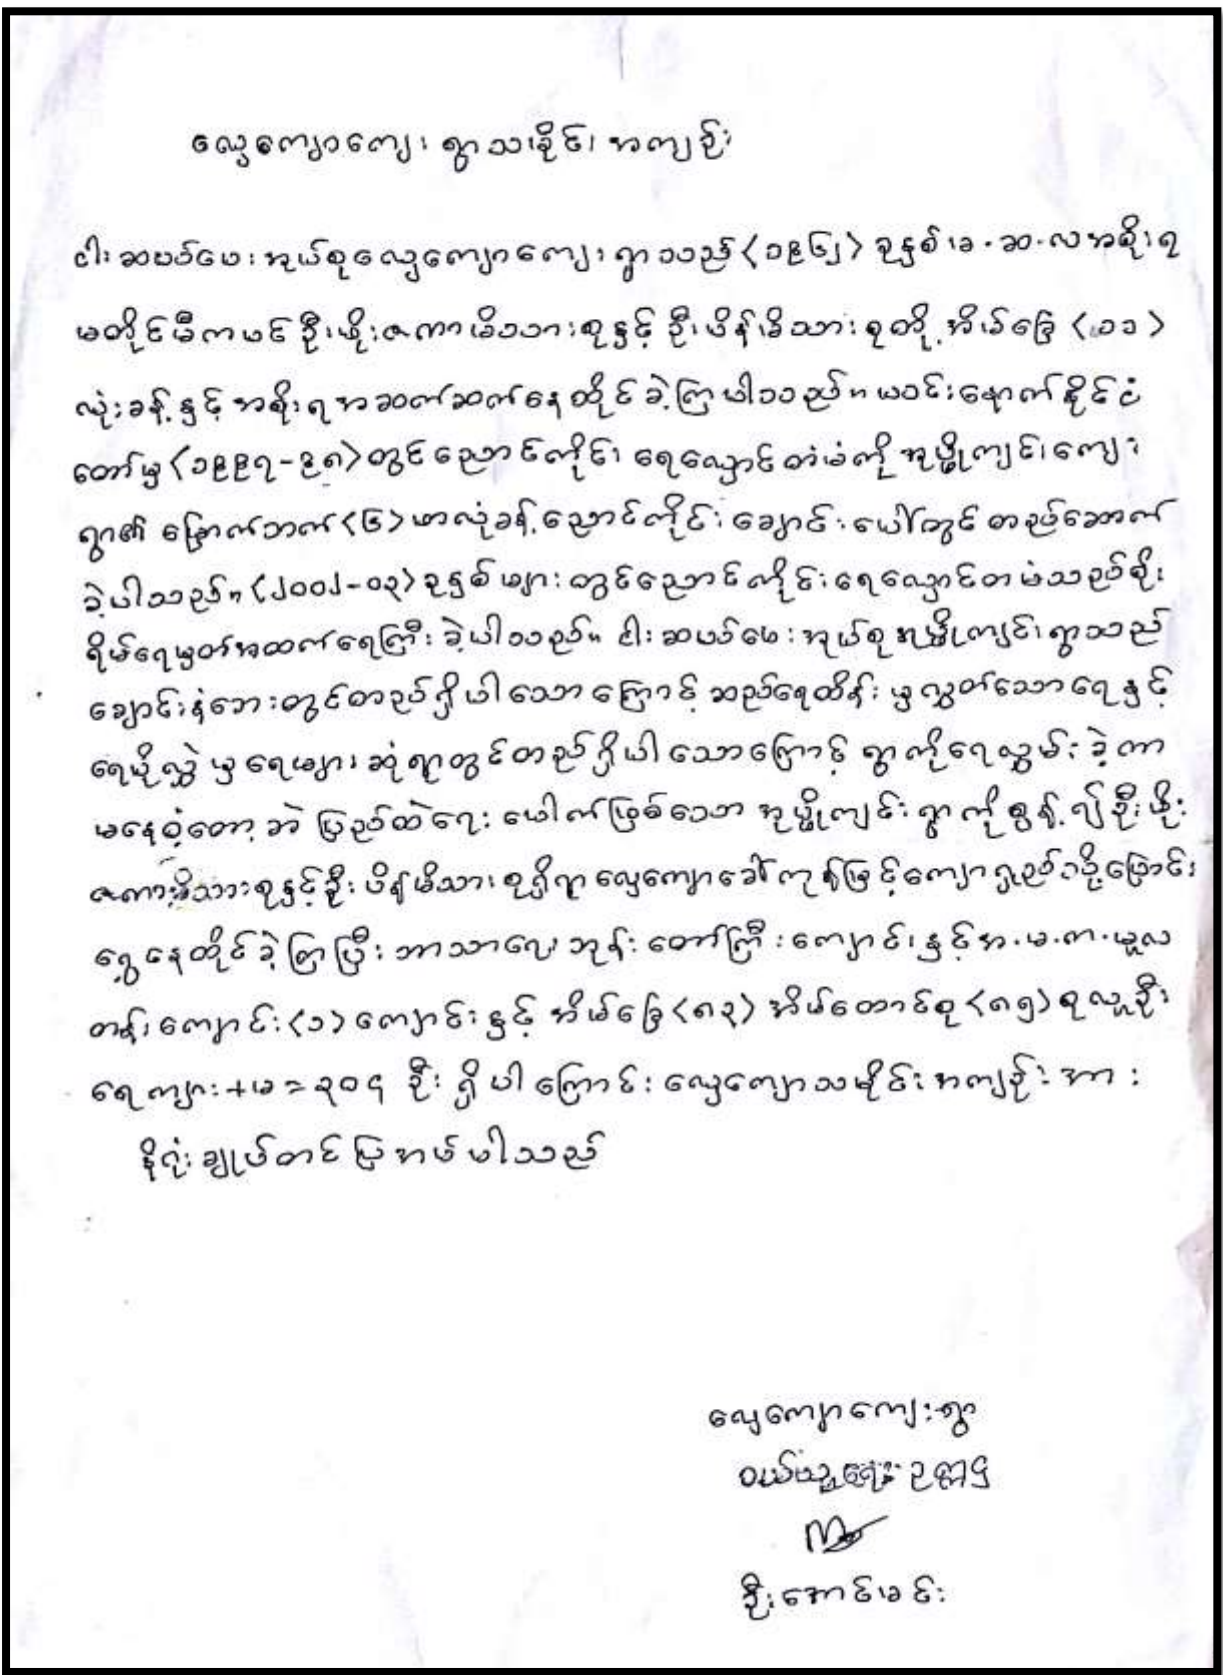 လှေကျောကျေးရွာသမိုင်း အကျဉ်း
ငါးဆယ်မေးအုပ်စုလှေကျောကျေးရွာသည် <၁၉၆၂> ခုနှစ် ခ.ဆ.လအစိုးရ
မတိုင်မီကပင် ဦးဖိုးဇကာမိသားစုနှင့် ဦးဖိန်မိသားစုတို့ အိမ်ခြေ <၁၁>
လုံးခန့်နှင့် အစိုးရအဆက်ဆက်နေထိုင်ခဲ့ကြပါသည်။ ယင်းနောက်နိုင်ငံ
တော်မှ <၁၉၉၇-၉၈> တွင်ညောင်ကိုင်း ရေလှောင်တံမံကို အုမ္ဖိုကျင်းကျေး
ရွာ၏ မြောက်ဘက် <၆> ဖာလုံခန့် ညောင်ကိုင်းချောင်းပေါ်တွင် တည်ဆောက်
ခဲ့ပါသည်။ <၂၀၀၂-၀၃> ခုနှစ်များတွင်ညောင်ကိုင်းရေလှောင်တမံသည်စိုး
ရိမ်ရေမှတ်အထက်ရေကြီးခဲ့ပါသည်။ ငါးဆယ်မေးအုပ်စု အုမ္ဖိုကျင်းရွာသည်
ချောင်းနံဘေးတွင်တည်ရှိပါသောကြောင့် ဆည်ရေထိန်းမှလွှတ်သောရေနှင့်
ရေပိုလွှဲမှရေများ ဆုံရာတွင်တည်ရှိပါသောကြောင့် ရွာကိုရေလွှမ်းခဲ့ကာ
မနေဝံ့တော့ဘဲ ပြည်ထဲရေးပေါက်ဖြစ်သော အုမ္ဖိုကျင်းရွာကိုစွန့်၍ ဦးဖိုး
ဇကာမိသားစုနှင့်ဦးဖိန်မိသားစုရှိရာ လှေကျောခေါ်ကုန်းမြင့်ကျောရှည်သို့ပြောင်း
ရွှေ့နေထိုင်ခဲ့ကြပြီး ဘာသာရေးဘုန်းတော်ကြီးကျောင်းနှင့်အ.မ.က.မူလ
တန်းကျောင်း <၁> ကျောင်းနှင့် အိမ်ခြေ <၈၃> အိမ်ထောင်စု <၈၅> စုလူဦး
ရေကျား+မ=၃၀၄ ဦးရှိပါကြောင်း လှေကျောသမိုင်းအကျဉ်းအား
နိဂုံးချုပ်တင်ပြအပ်ပါသည်
လှေကျောကျေးရွာ
ဥက္ကဌ
ဦးအောင်ခင်း